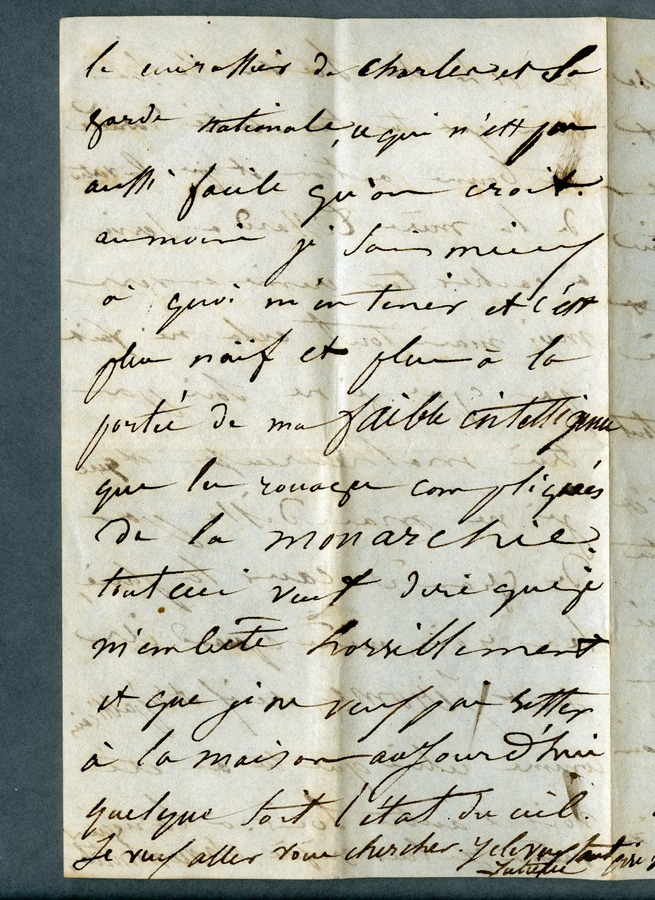 le cuirassier de Charles et la
garde nationale, ce qui n'est pas
aussi facile qu'on croit.
au moins je sais mieux
à quoi m'en tenir et c'est
plus naïf et plus à la
portée de ma faible intelligence
que les rouages compliqués
de la monarchie.
tout ceci veut dire que je
m'embête horriblement
et que je ne veux pas rester
à la maison aujourd'hui
quelque soit l'état du ciel.
Je veux aller vous chercher. Je le veux tant pire